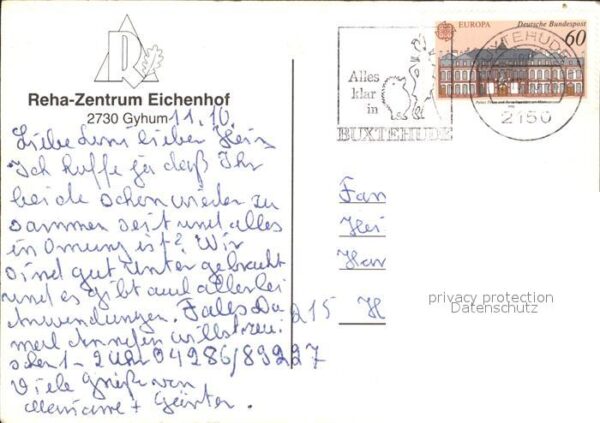 Reha-Zentrum Eichenhof
2730 Gyhum
11.10.
Liebe lieber Hein
Ich hoffe ja daß Ihr
beide schon wieder zu
sammen seit und alles
in Ornung ist? Wir
sind gut unter gebracht
und es gibt auch allerlei
Anwendungen. Falls Du
mal Anrufen willst
1 - 2 Uhr 04286/89227
Viele Grüße von
Marianne + Günter.
EUROPA Deutsche Bundespost
60
Alles
klar
in
BUXTEHUDE
BUXTEHUDE
2150
Fam
Hei
Har
215 H
privacy protection
Datenschutz